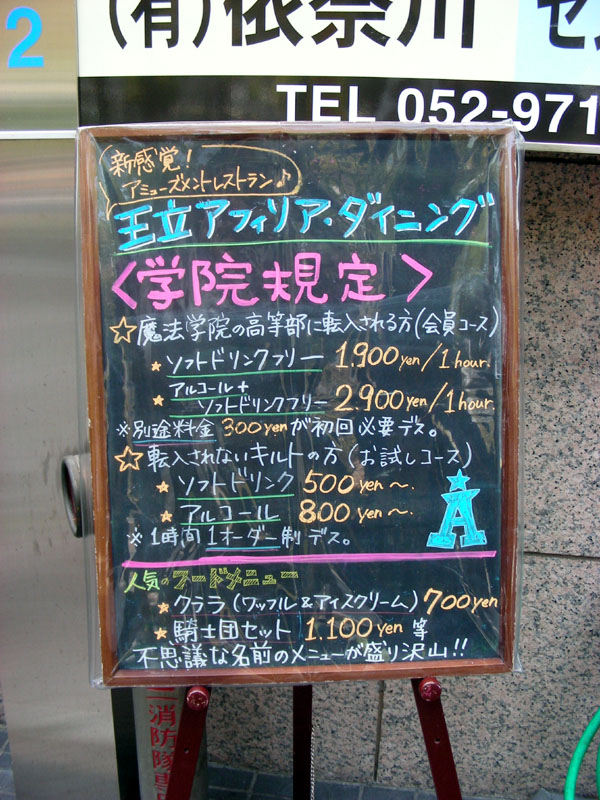 2
(有)依奈川
セ
TEL 052-971
新感覚!
アミューズメントレストラン♪
王立アフィリア・ダイニング
〈学院規定〉
☆魔法学院の高等部に転入される方(会員コース)
★ソフトドリンクフリー 1.900yen/1hour.
★アルコール+
ソフトドリンクフリー 2.900yen/1hour.
※別途料金 300yenが初回必要デス。
☆転入されないキルトの方(お試しコース)
★ソフトドリンク 500yen~.
★アルコール 800yen~.
※1時間1オーダー制デス。
A
人気のフードメニュー
★クララ(ワッフル&アイスクリーム)700yen
★騎士団セット 1.100yen 等
不思議な名前のメニューが盛り沢山!!
消防隊専